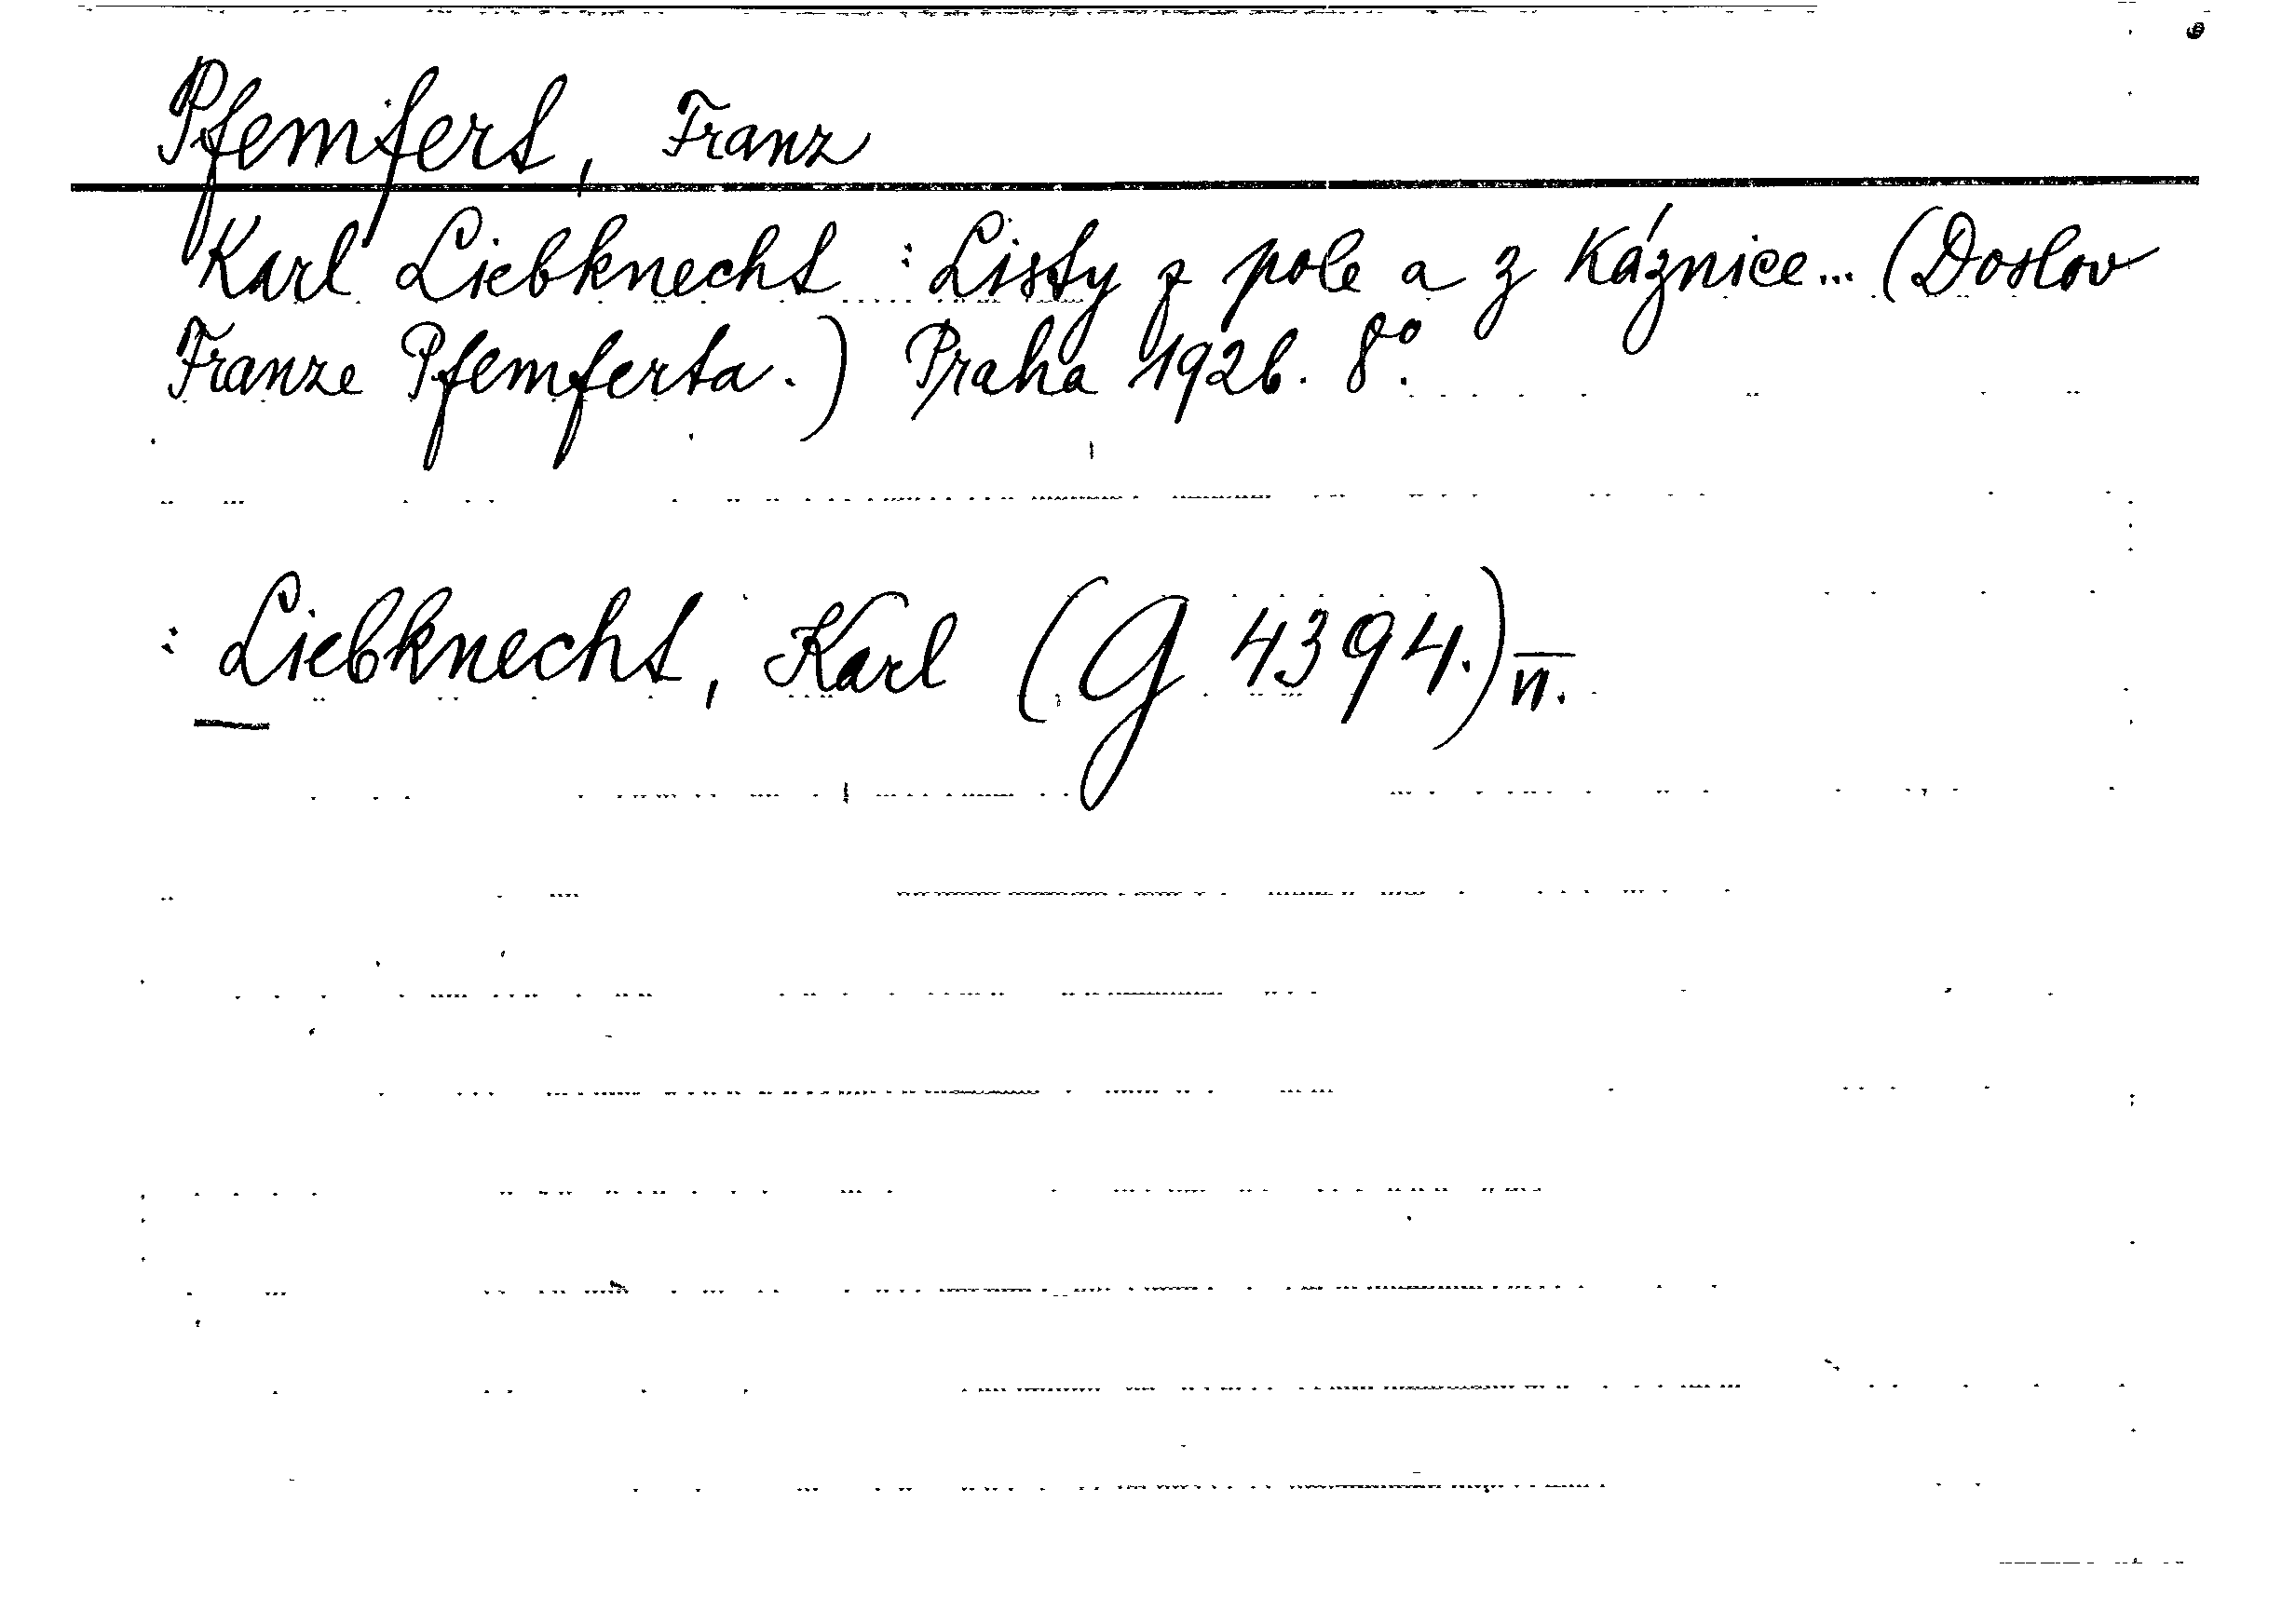 Pfemfert, Franz
Karl Liebknecht: Listy z pole a z káznice... (Doslov
Franze Pfemferta.) Praha 1926. 8°.
: Liebknecht, Karl (G 4394.)